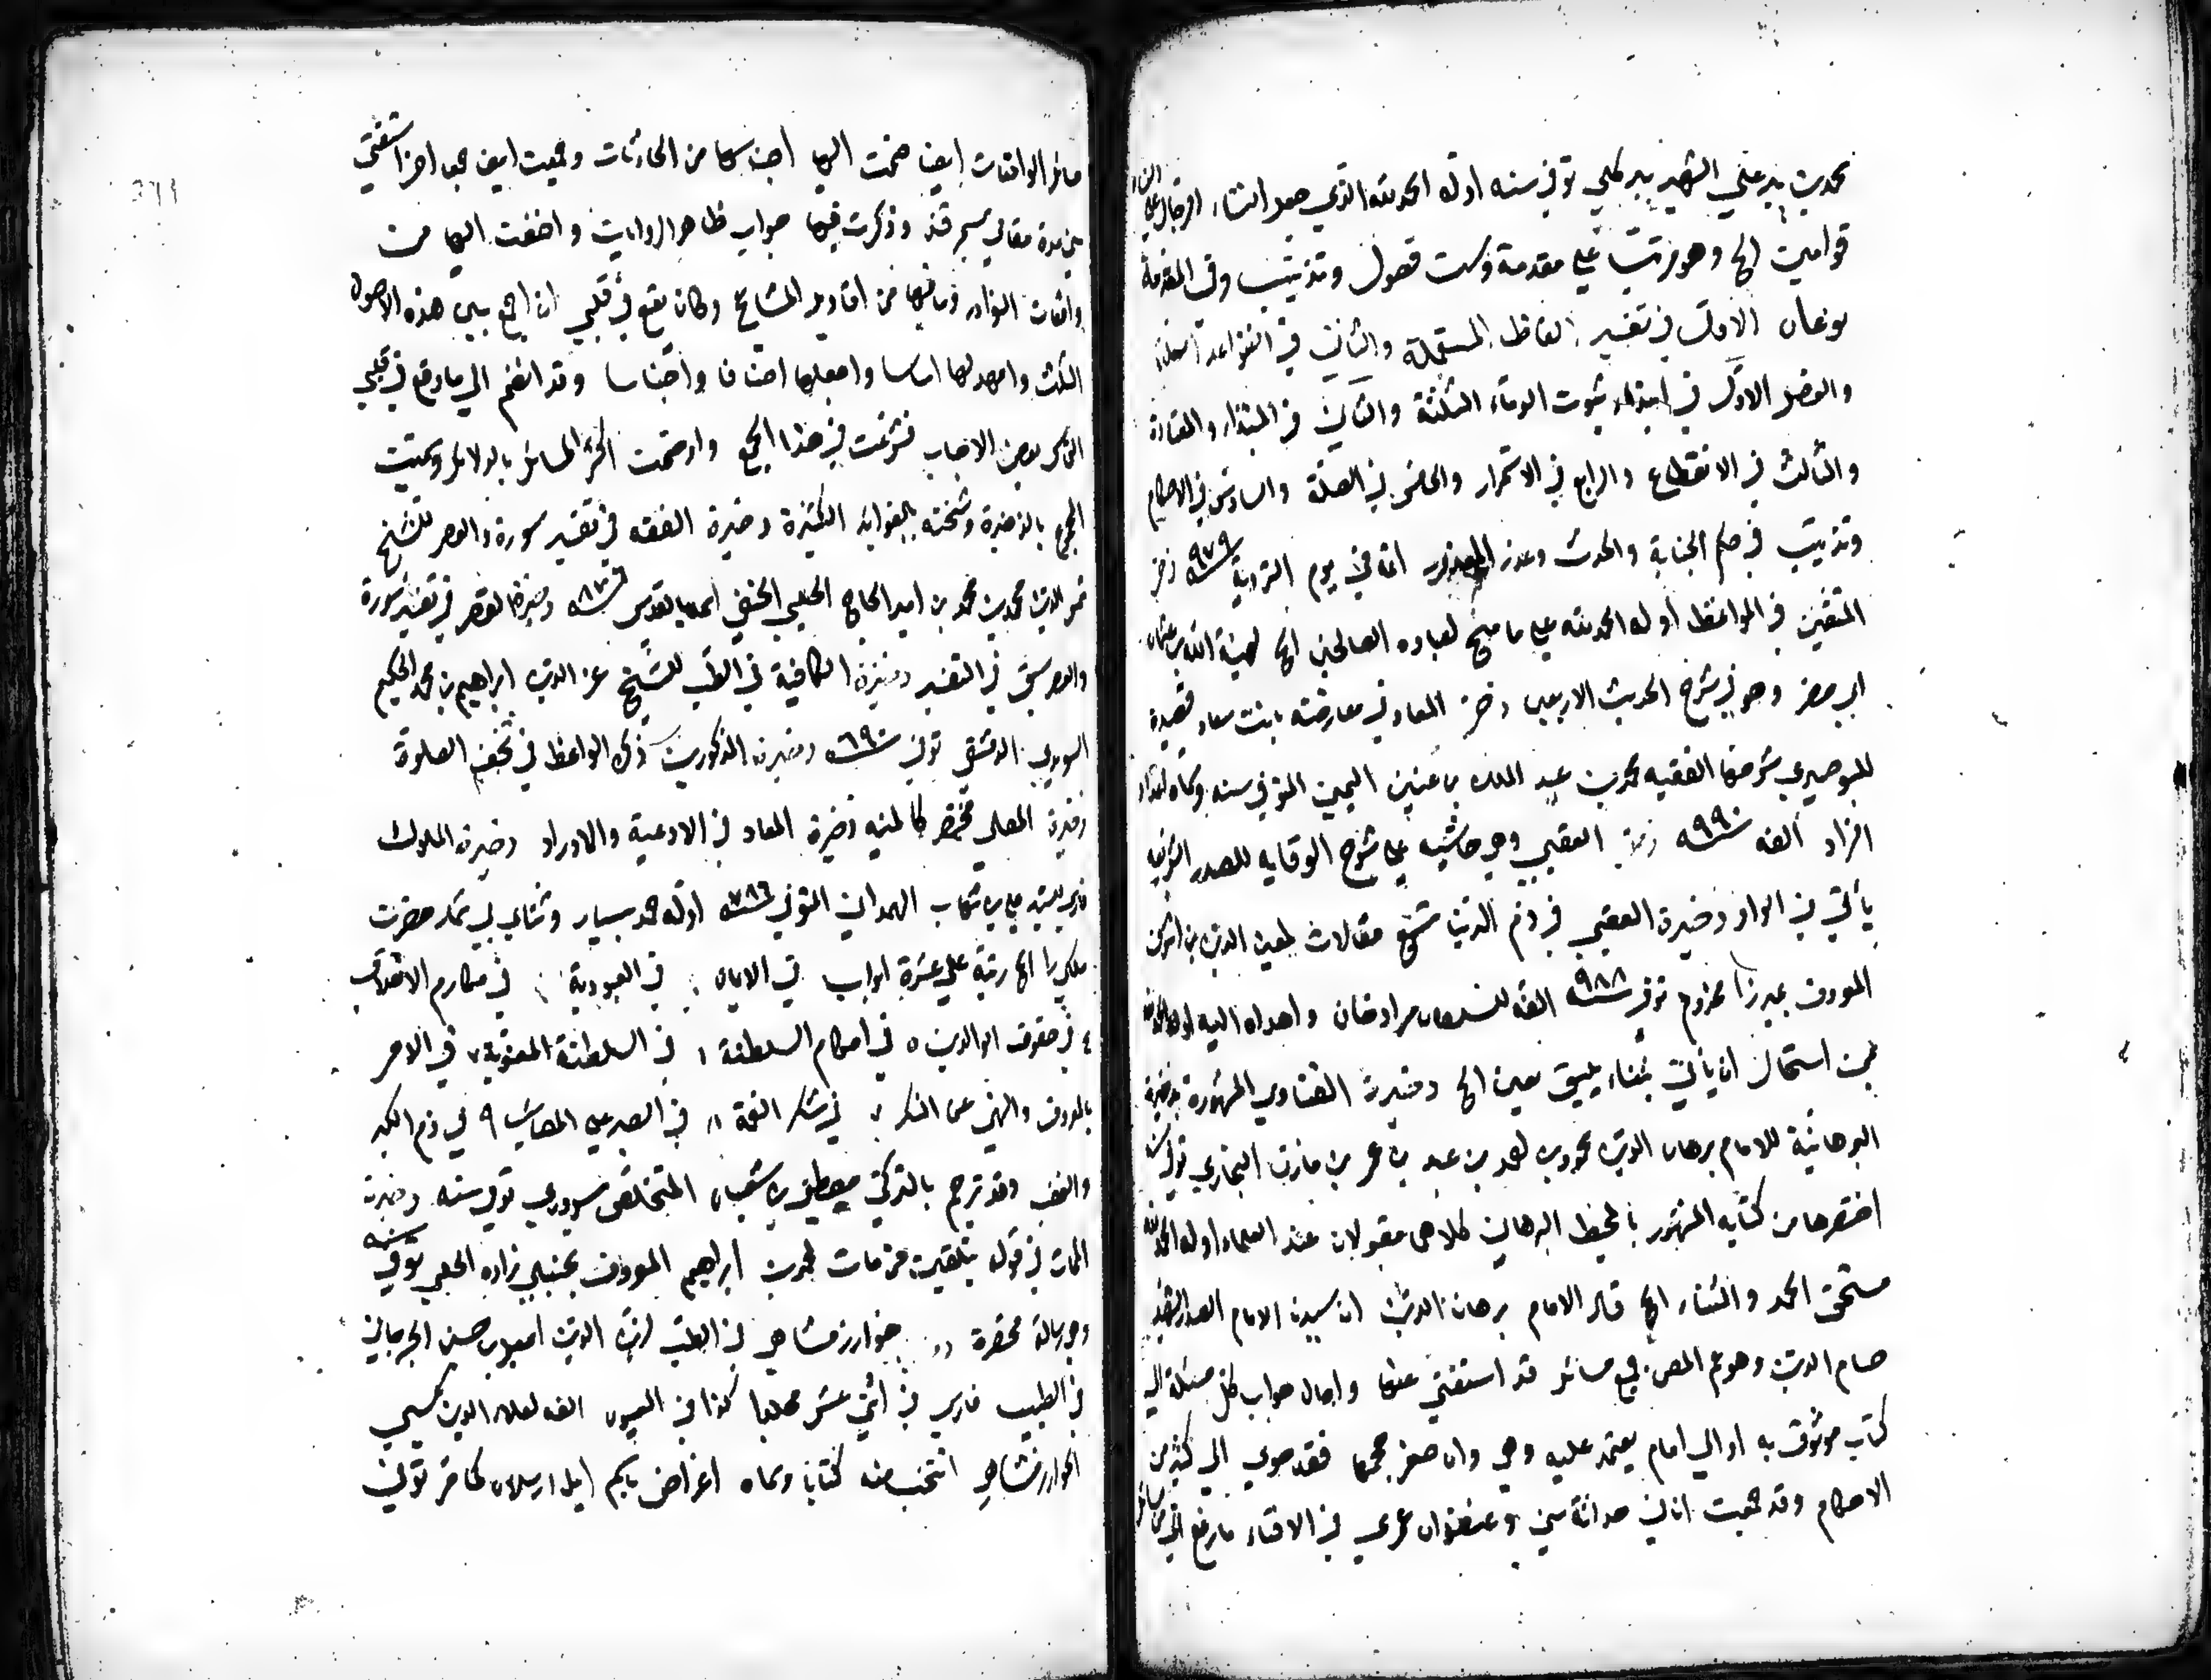 محمد بن بير علي الشهير ببركلي توفي سنه اوله الحمد لله الذي جعل الرجال علي النساء
قوامين الخ وهو مرتب علي مقدمة وست فصول وتذنيب وفي المقدمة
نوعان الاول في تفسير الفاظ المستعملة والثاني في القواعد
والفصل الاول في ابتداء ثبوت الدماء الثلثة والثاني في المبتداة والمعتادة
والثالث في الانقطاع والرابع في الاستمرار والخامس في الضلة والسادس في الاحكام
وتذنيب في حكم الجنابة والحدث وعذر المعذور اتمه في يوم التروية سنه ٩٧٩ ذخر
المتقين في المواعظ اوله الحمد لله علي ما منح لعباده الصالحين الخ لهبة الله بن عثمان
ابي جعفر وهو في شرح الحديث الاربعين ذخر المعاد في معارضته بانت سعاد قصيدة
للبوصيري شرحها الفقيه محمد بن عبد الملك بن عنين اليمين المتوفي سنه وسماه
الزاد الفه سنه ٩٩٠ ذخيرة العقبي وهي حاشيه علي شرح الوقايه للصدر الشريعه
يأتي في الواو ذخيرة العقبي في ذم الدنيا تسع مقالات لمعين الدين بن اشرف
المعروف بميرزا مخدوم توفي سنه ٩٨٨ الفه للسلطان مراد خان واهداه اليه اوله الحمد لله
لمن استحال ان يأتي بثناء يليق معين الخ ذخيرة الفتاوي المشهورة بذخيرة
البرهانية للامام برهان الدين محمود بن احمد بن عبد بن عمر بن مازن البخاري توفي سنه
اختصرها من كتابه المشهور بالمحيط البرهاني كلاهما مقبولان عند العلماء اوله الحمد لله
مستحق الحمد والثناء الخ قال الامام برهان الدين ان سيدنا الامام الصدر الشهيد
حسام الدين وهو عم المص جمع مسائل قد استفتي عنها واحال جواب كل مسئلة الي
كتاب موثوق به او الي امام يعتمد عليه وهي وان صغر حجمها فقد حوي الي كثير من
الاحكام وقد جمعت انا في حداثة سني وعنفوان عمري في الافتاء ما رفع الي من مسائل
مسائل الواقعات ايضا ضمت اليها اجناسها من الحادثات وجمعت ايضا جمعا اخر استفتي
مني مدة مقامي بسمرقند وذكرت فيها جواب ظاهر الروايات واضفت اليها من
واقعات النوادر وما فيها من اقاويل المشايخ وكان يقع في قلبي ان اجمع بين هذه الاصول
الثلث وامهد لها اساسا واجعلها اصنافا واجناسا وقد انضم الي ما وقع في قلبي
التماس بعض الاحباب فشرعت في هذا الجمع واوضحت اكثر المسائل بالدلائل وسميت
المجموع بالذخيرة وشحنته بالفوايد الكثيرة ذخيرة الفقه في تفسير سورة والعصر للشيخ
شمس الدين محمد بن محمد بن امير الحاج الحلبي الحنفي املاها بالقدس سنه ٨٧٦ ذخيرة القصر في تفسير سورة
والعصر سبق في التفسير ذخيرة الكافية في الطب للشيخ عز الدين ابراهيم بن محمد الحكيم
السويدي الدمشقي توفي سنه ٦٩٠ ذخيرة المذكورين ذكره الواعظ في تحفة الصلوة
ذخيرة المصلي مختصر كالمنيه ذخيرة المعاد في الادعية والاوراد ذخيرة الملوك
فارسي لسيد علي بن شهاب الهمداني المتوفي سنه ٧٨٦ اوله حمد بسيار وثناي بي شمار حضرت
ملكي را الخ رتبه علي عشرة ابواب في الايمان في العبودية في مكارم الاخلاق
٤ في حقوق الوالدين ٥ في احكام السلطنة ٦ في السلطنة المعنوية ٧ في الامر
بالمعروف والنهي عن المنكر ٧ في شكر النعمة ٨ في الصبر علي المصائب ٩ في ذم الكبر
والغضب وقد ترجم بالتركي مصطفي بن شعبان المتخلص بسروري توفي سنه ذخيرة
الممات في قول بتلقين من مات لمحمد بن ابراهيم المعروف بحنبلي زاده الحلبي توفي سنه
وهي رسالة مختصرة خوارزمشاهي في الطب لزين الدين اسمعيل بن حسن الجرجاني
في الطب فارسي في اثني عشر مجلدا كذا في العيون الفه لعلاء الدين تكسي
الخوارزمشاهي انتخب منه كتابا وسماه اغراض باسم ايل ارسلان كما مر توفي